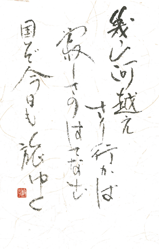 幾山河越え
さり行かば
寂しさのはてなむ
国ぞ今日も旅ゆく